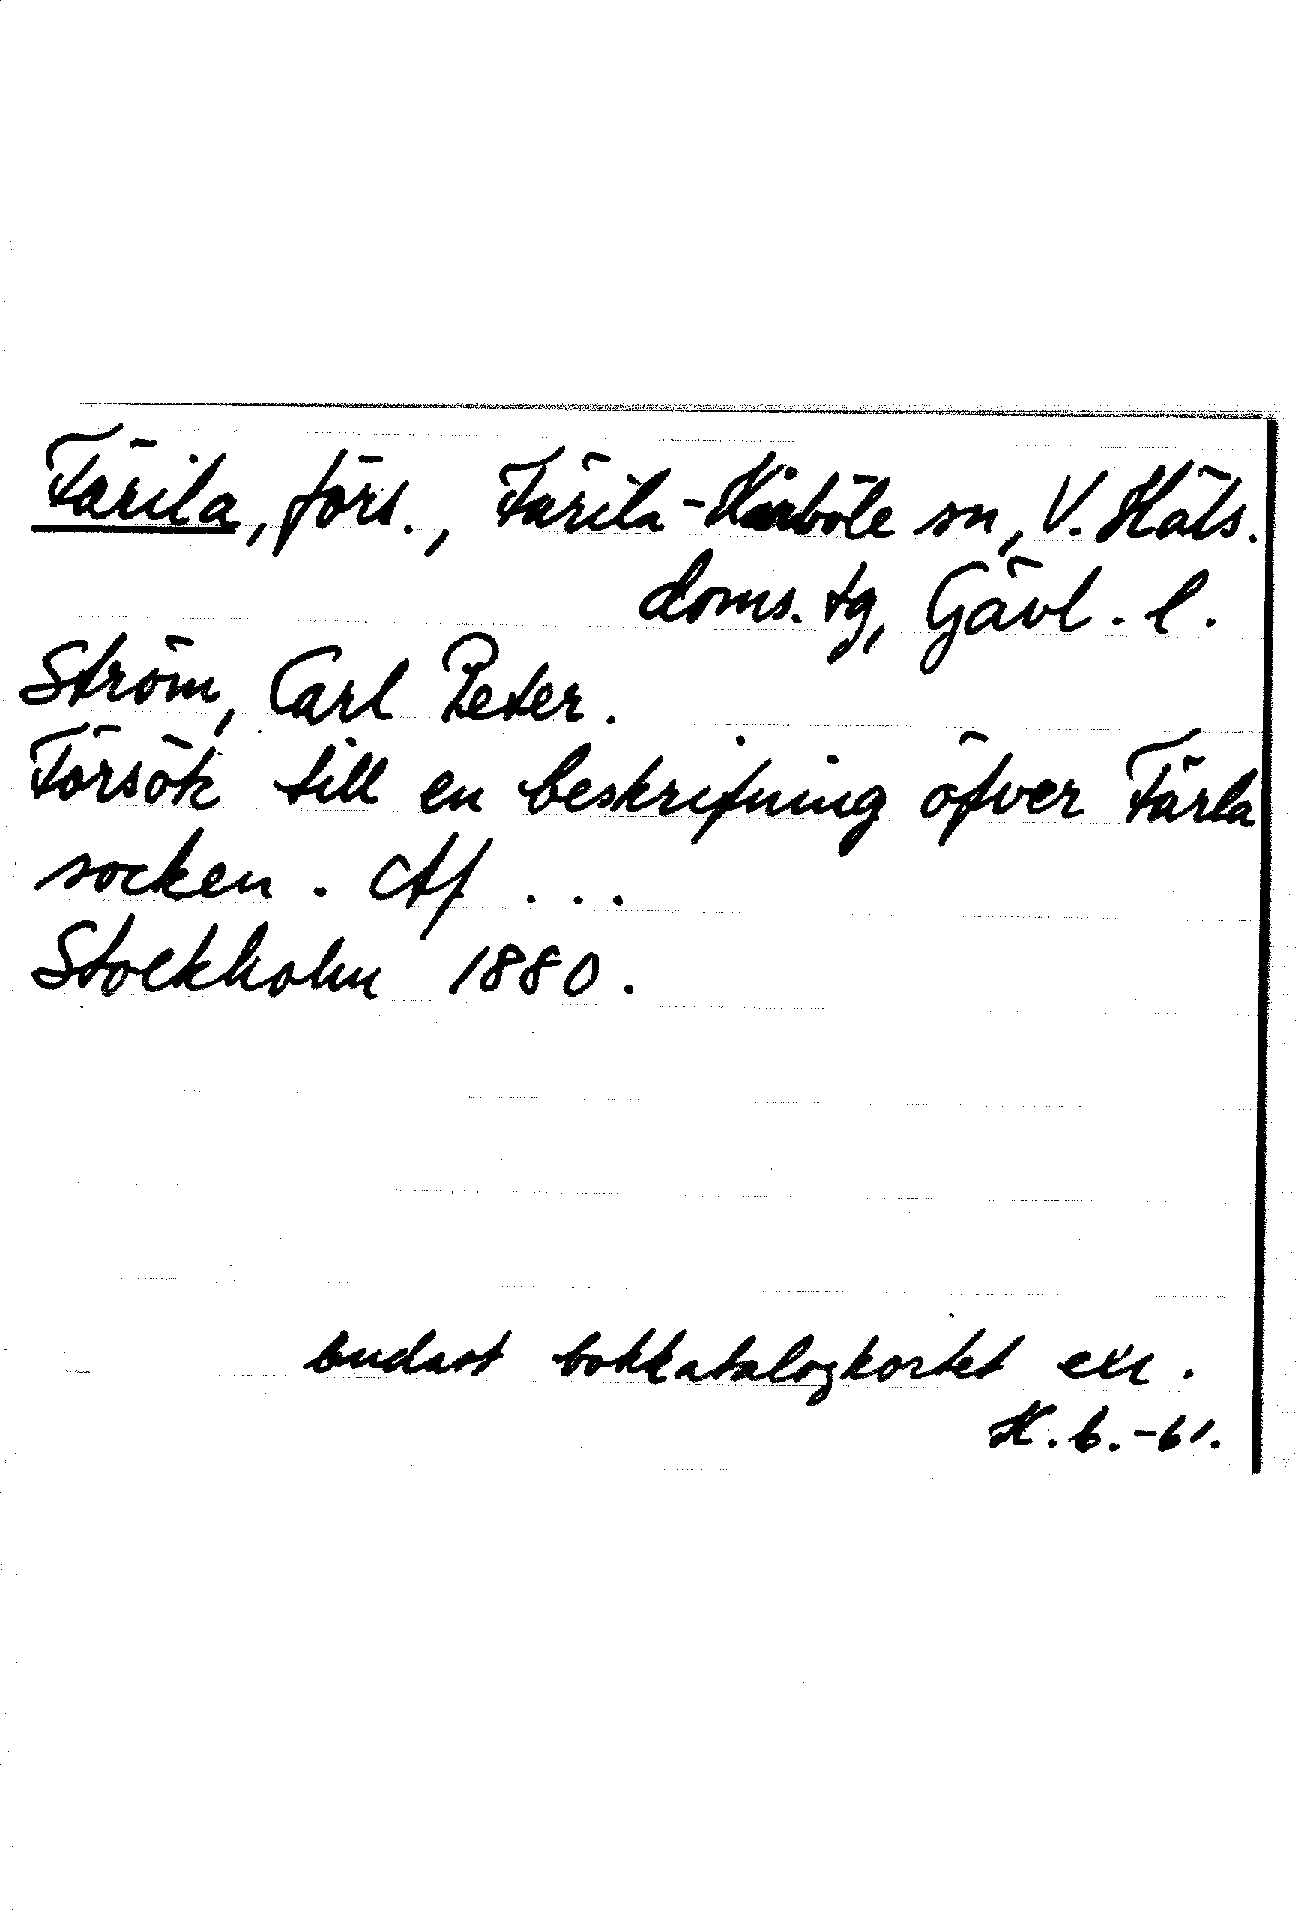 Färila, förs., Färila-Kårböle sn, V. Häls.
doms. tg, Gävl. l.
Ström, Carl Peter.
Försök till en beskrifning öfver Färla
socken. Af ...
Stockholm 1880.
endast bokkatalogkortet exc.
H. 6.-61.